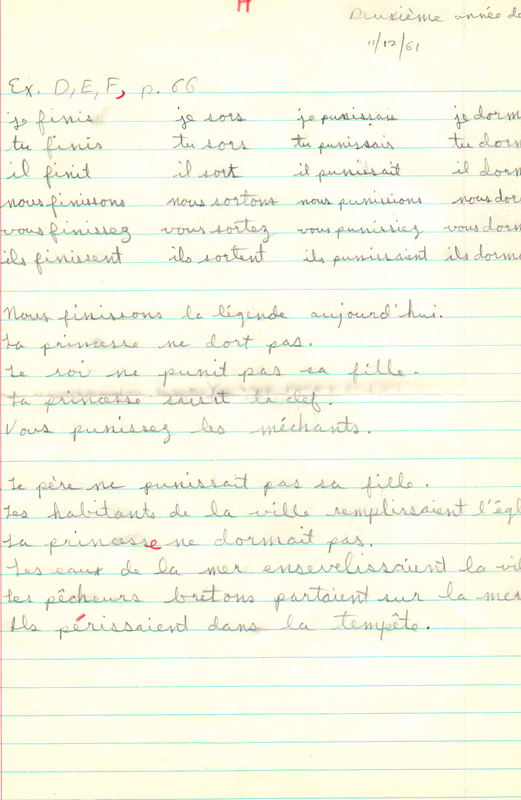 H
Deuxième année de
11/12/61
Ex. D, E, F, p. 66
je finis je sors je punissais je dorm
tu finis tu sors tu punissais tu dorm
il finit il sort il punissait il dorm
nous finissons nous sortons nous punissions nous dor
vous finissez vous sortez vous punissiez vous dorm
ils finissent ils sortent ils punissaient ils dorm
Nous finissons la légende aujourd'hui.
La princesse ne dort pas.
Le roi ne punit pas sa fille.
La princesse saisit la clef.
Vous punissez les méchants.
Le père ne punissait pas sa fille.
Les habitants de la ville remplissaient l'égl
La princesse ne dormait pas.
Les eaux de la mer ensevelissaient la vil
Les pêcheurs bretons partaient sur la mer
Ils périssaient dans la tempête.